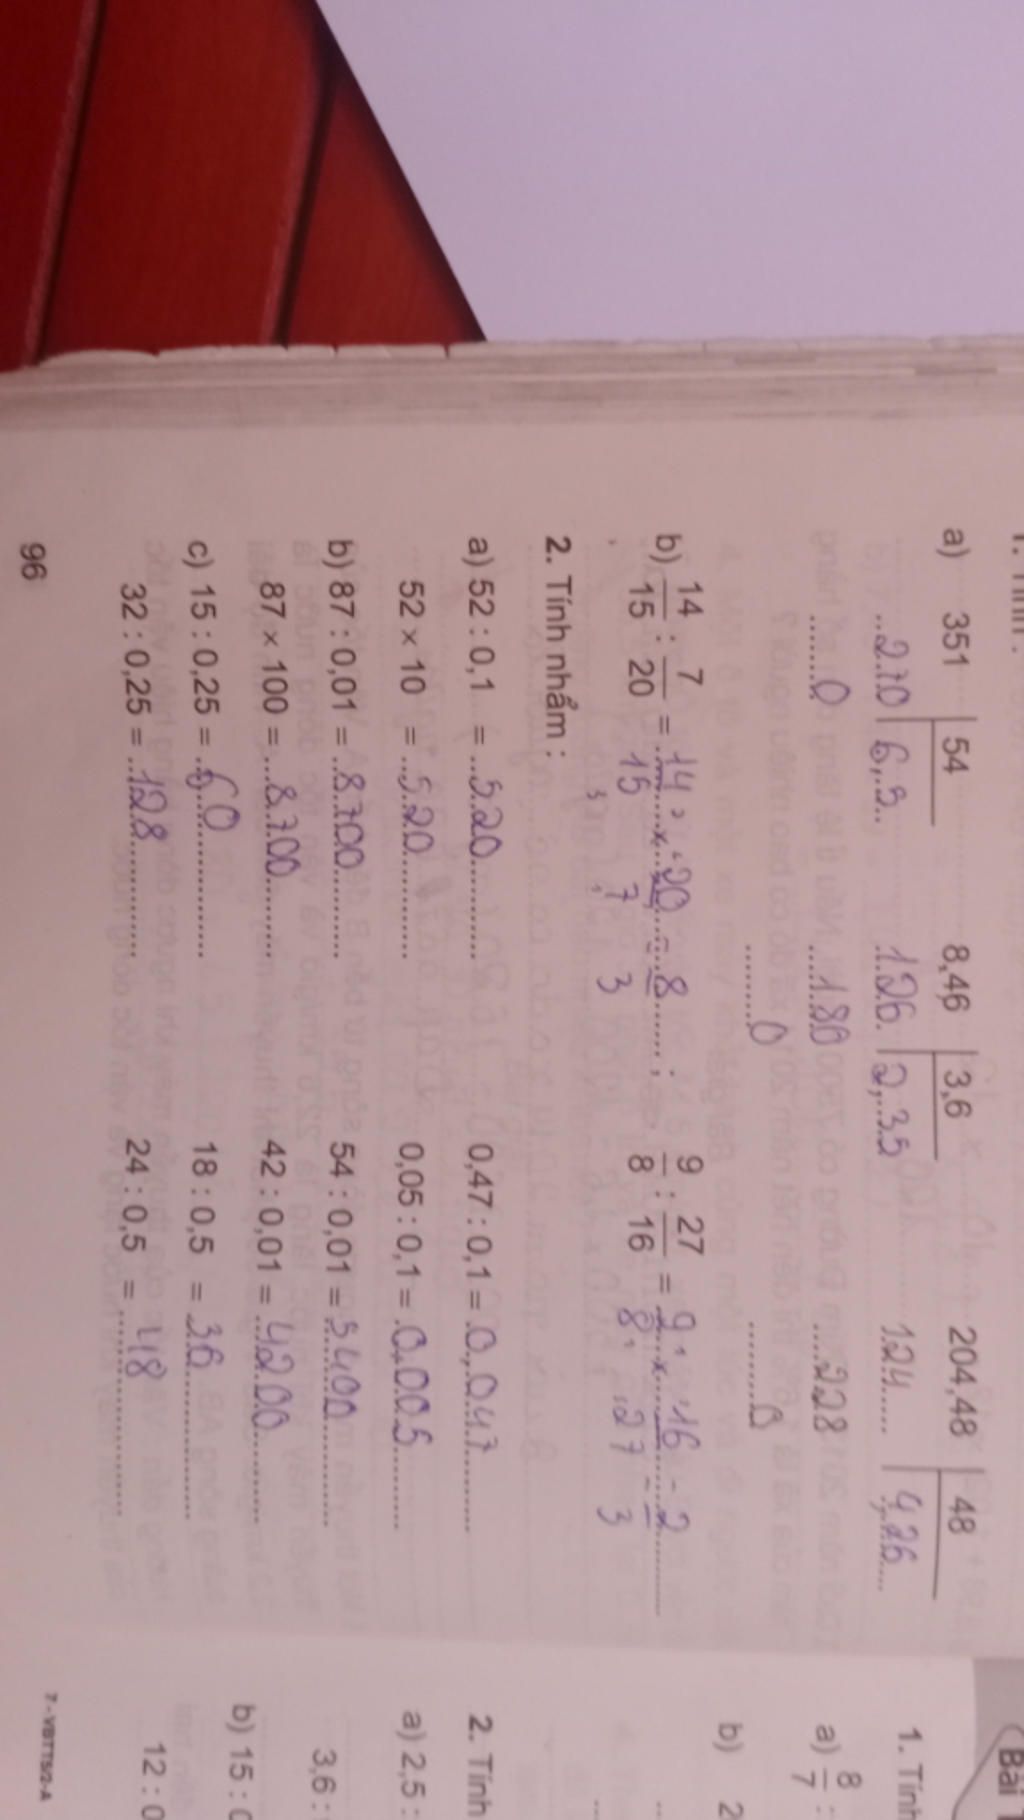 a) 351 | 54 8,46 | 3,6 204,48 | 48
270 | 6,5 126 | 2,35 124 | 4,26
0 180 228
0 0
b) 14/15 : 7/20 = 14/15 x 20/7 = 8/3 ; 9/8 : 27/16 = 9/8 x 16/27 = 2/3
2. Tính nhẩm :
a) 52 : 0,1 = 520 0,47 : 0,1 = 0,047
52 × 10 = 520 0,05 : 0,1 = 0,005
b) 87 : 0,01 = 8700 54 : 0,01 = 5400
87 × 100 = 8700 42 : 0,01 = 4200
c) 15 : 0,25 = 60 18 : 0,5 = 36
32 : 0,25 = 128 24 : 0,5 = 48
96
Bài
1. Tính
a) 8/7 :
b) 2
2. Tính
a) 2,5 :
3,6 :
b) 15 : 0
12 : 0
7 - VBTT5/2-A